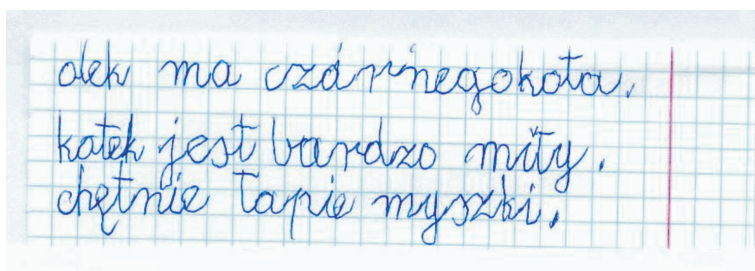 olek ma czarnegokota.
kotek jest bardzo miły.
chętnie łapie myszki.